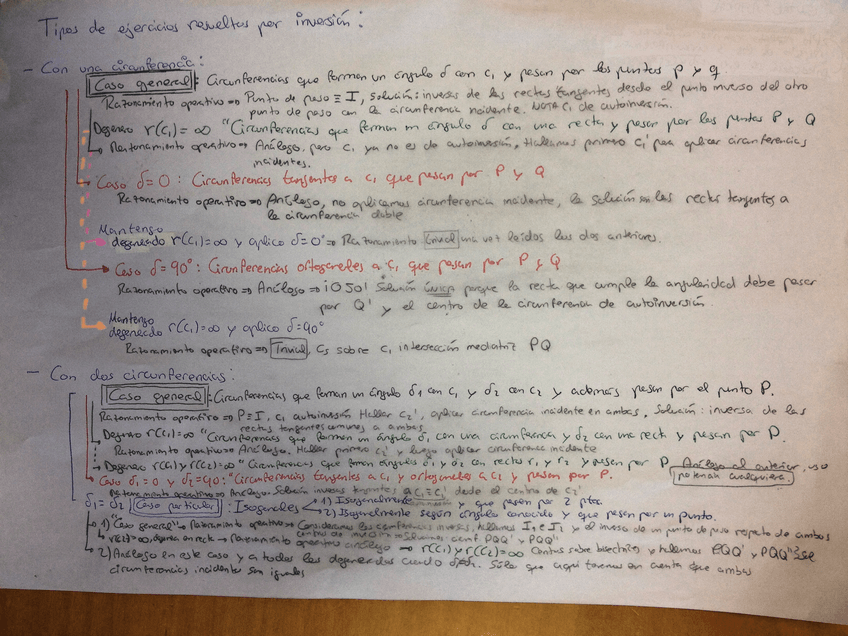 Tipos de ejercicios resueltos por inversión:
- Con una circunferencia:
Caso general: Circunferencias que forman un ángulo δ con c₁ y pasan por los puntos P y q
Razonamiento operativo ⇒ Punto de paso ≡ I, Solución: inversas de las rectas tangentes desde el punto inverso del otro
punto de paso con la circunferencia incidente. NOTA C₁ de autoinversión.
Degenero r(c₁) = ∞ "Circunferencias que forman un ángulo δ con una recta y pasan por los puntos P y Q
Razonamiento operativo ⇒ Análogo, pero c₁ ya no es de autoinversión. Hallamos primero c₁' para aplicar circunferencias
incidentes.
Caso δ = 0 : Circunferencias tangentes a c₁ que pasan por P y Q
Razonamiento operativo ⇒ Análogo, no aplicamos circunferencia incidente, la solución son las rectas tangentes a
la circunferencia doble
Mantengo
degenerado r(c₁) = ∞ y aplico δ = 0° ⇒ Razonamiento trivial una vez leídos los dos anteriores.
Caso δ = 90° : Circunferencias ortogonales a c₁ que pasan por P y Q
Razonamiento operativo ⇒ Análogo ⇒ ¡OJO! Solución única porque la recta que cumple la angularidad debe pasar
por Q' y el centro de la circunferencia de autoinversión.
Mantengo
degenerado r(c₁) = ∞ y aplico δ = 90°
Razonamiento operativo ⇒ trivial, Cs sobre c₁ intersección mediatriz PQ
- Con dos circunferencias:
Caso general: Circunferencias que forman un ángulo δ1 con c₁ y δ2 con c2 y además pasan por el punto P.
Razonamiento operativo ⇒ P ≡ I, c₁ autoinversión Hallar c2', aplicar circunferencia incidente en ambas, Solución: inversa de las
rectas tangentes comunes a ambas.
Degenero r(c₁) = ∞ "Circunferencias que forman un ángulo δ1 con una circunferencia y δ2 con una recta y pasan por P.
Razonamiento operativo ⇒ Análogo. Hallar primero c2' y luego aplicar circunferencia incidente
Degenero r(c₁) y r(c2) = ∞ "Circunferencias que forman ángulos δ1 y δ2 con rectas r₁ y r2 y pasan por P Análogo al anterior, uso
potencia cualquiera.
Caso δ1 = 0 y δ2 = 90: "Circunferencias tangentes a c₁ y ortogonales a c2 y pasan por P.
Razonamiento operativo ⇒ Análogo. Solución inversas tangentes a c₁ ≡ c₁' desde el centro de c2'
δ1 = δ2 Caso particular: Isogonales 1) Isogonalmente y que pasen por 2 ptos.
2) Isogonalmente según ángulo conocido y que pasen por un punto.
1) "Caso general" ⇒ Razonamiento operativo ⇒ Consideramos las circunferencias inversas, hallamos I₁ e I2 y el inverso de un punto de paso respecto de ambos
centro de inversión ⇒ Solución circunf PQQ' y PQQ''
r(c₁) = ∞, degenera en recta → Razonamiento operativo análogo → r(c₁) y r(c2) = ∞ Centros sobre bisectriz y hallamos PQQ' y PQQ''
2) Análogo en este caso y a todos los degenerados cuando Sólo que aquí tenemos en cuenta que ambas
circunferencias incidentes son iguales